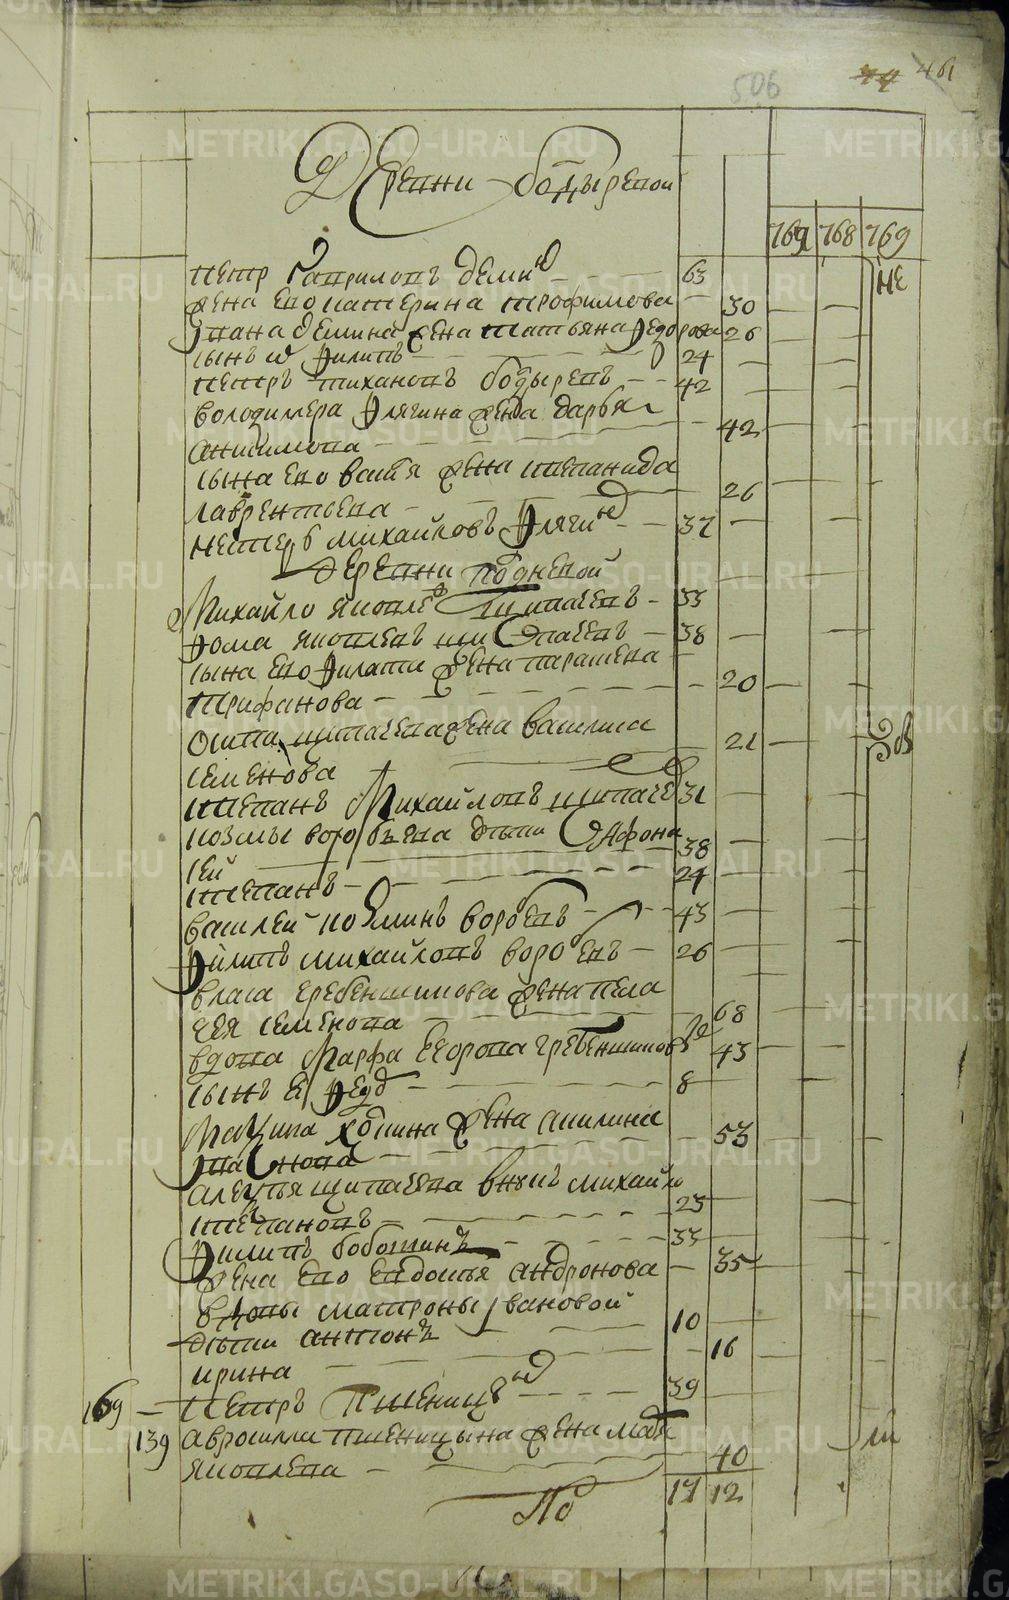 506
461
Деревни Бодыревой
769 768 769
петр Гавриловъ демин 63
жена ево катерина трофимова 30
Ивана демина жена татьяна Федорова 26
сынъ Филипъ 24
петръ тихановъ бодыревъ 42
володимера Флягина жена дарья
анисимова 42
сына ево васи жена степанида
лаврентьева 26
нестеръ михайловъ Флягин 37
не
деревни
Михайло яковлев Щипачевъ 33
Фома яковлевъ щипачевъ 38
сына ево Филата жена парасковя
трифанова 20
осипа щипачева жена василиса
семенова 21
степанъ Михайловъ щипачев 31
козмы воробьева дети Афона
сей 38
степанъ 24
василей козминъ воробьевъ 43
Филипъ михайловъ воробьевъ 26
власа гребенщикова жена пела
гея семенова 68
вдова Марфа Егорова гребенщикова 43
сынъ ея Федор 8
Максима жена акилина
53
алексея щипачева внукъ михайло
степановъ 23
Филипъ 33
жена ево евдокья андронова 35
вдовы матроны Ивановой
дети антонъ 10
ирина 16
169 петръ Пшеницын 39
139 авросима пшеницына жена мавра
яковлева 40
17 12
METRIKI.GASO-URAL.RU